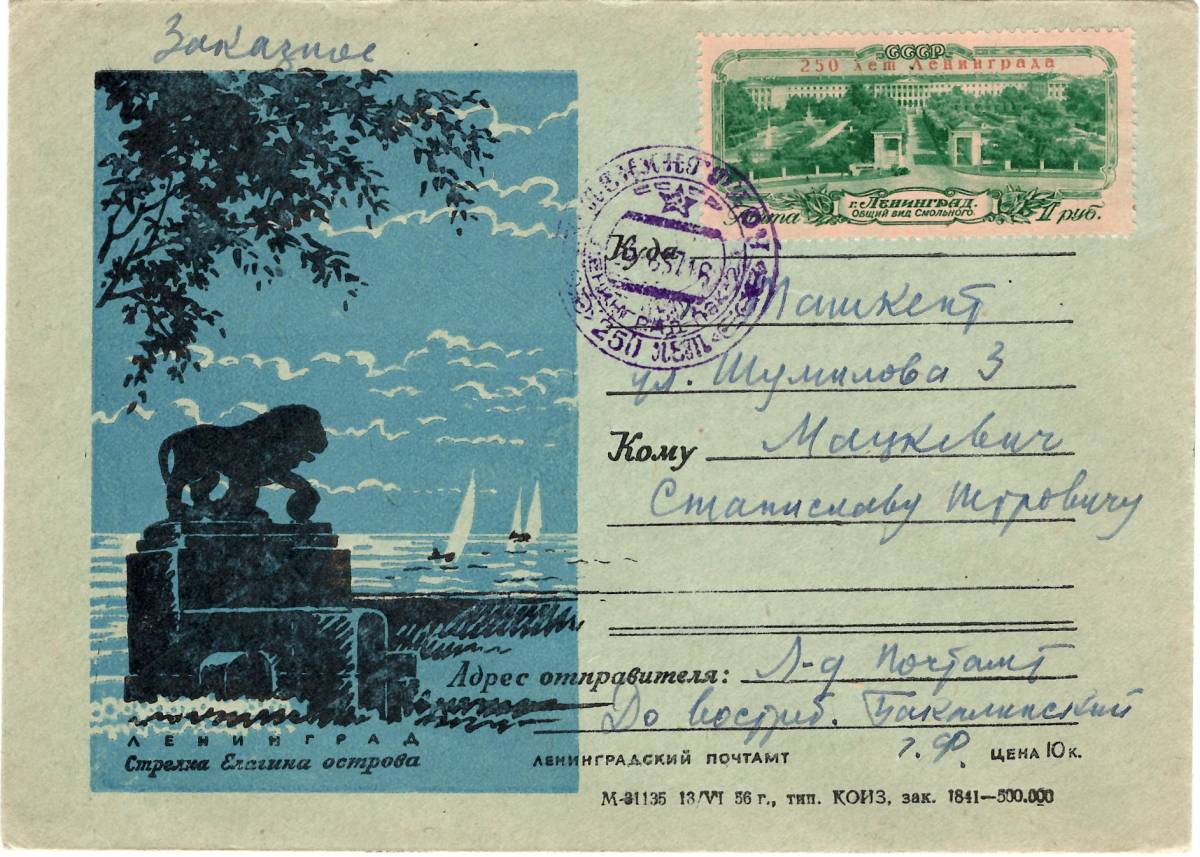 Заказное
СССР
250 лет Ленинграда
г. Ленинград.
общий вид Смольного.
Почта 1 руб.
250 лет
Куда
Ташкент
ул. Шумилова 3
Кому Мацкевич
Станиславу Петровичу
Адрес отправителя: Л-д Почтамт
До востреб. Бакалинский
ЛЕНИНГРАД
Стрелка Елагина острова
ЛЕНИНГРАДСКИЙ ПОЧТАМТ
ЦЕНА 10 к.
М-31135 13/VI 56 г., тип. КОИЗ, зак. 1841—500.000